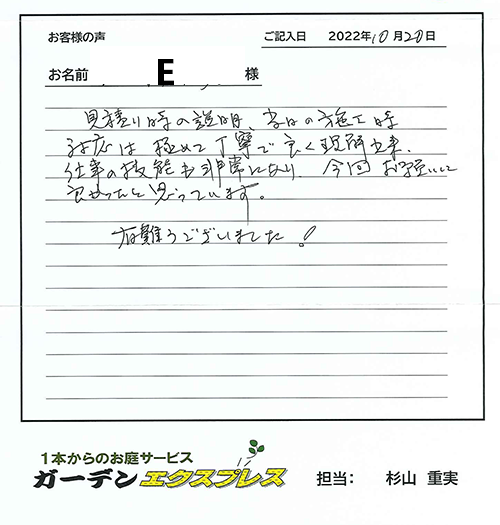 お客様の声
ご記入日 2022年10月20日
お名前 E 様
見積り時の説明、当日の施工時
対応は極めて丁寧で良く理解出来、
仕事の技能も非常にあり、今回お願いして
良かったと思っています。
有難うございました!
1本からのお庭サービス
ガーデンエクスプレス
担当: 杉山 重実